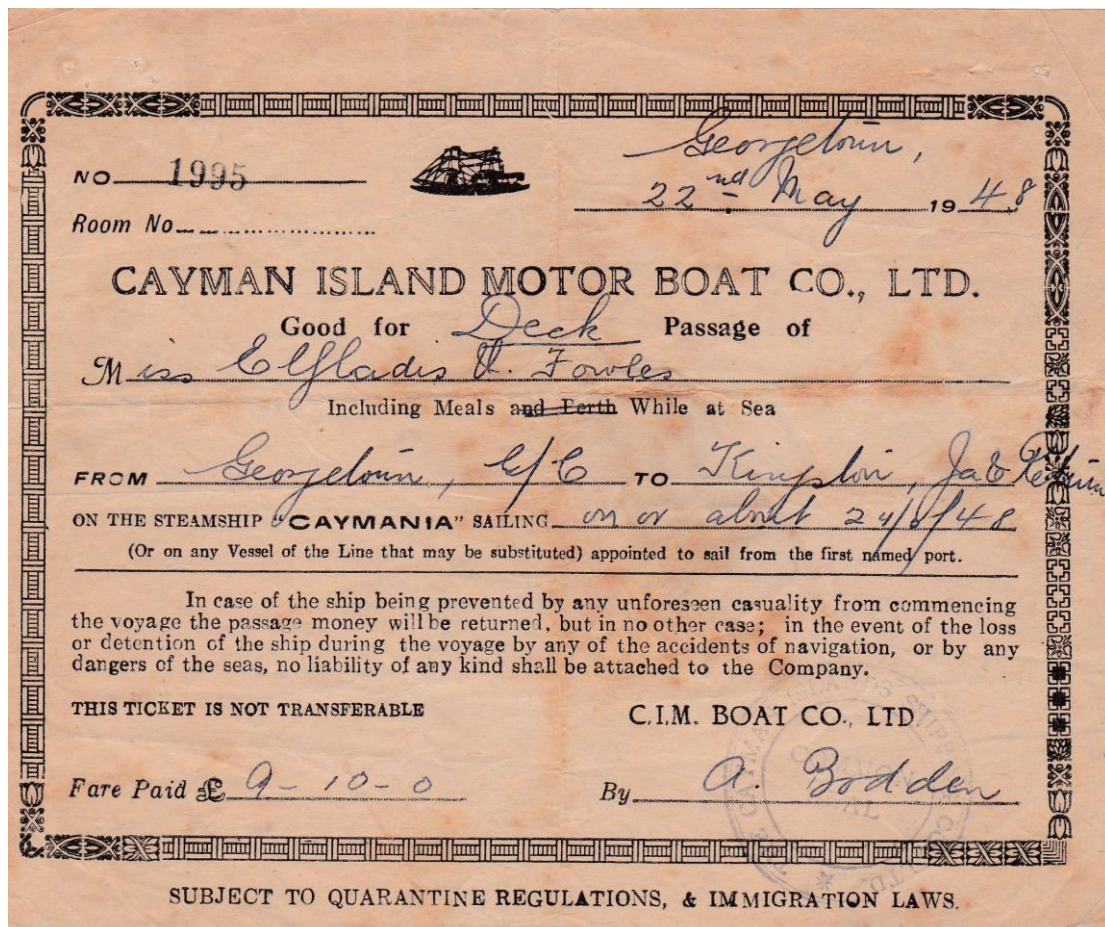 Georgetown,
NO 1995 22nd May 1948
Room No
CAYMAN ISLAND MOTOR BOAT CO., LTD.
Good for Deck Passage of
Miss Elfladis V. Fowles
Including Meals and Berth While at Sea
FROM Georgetown, G/C TO Kingston, Ja & Return
ON THE STEAMSHIP "CAYMANIA" SAILING on or about 24/5/48
(Or on any Vessel of the Line that may be substituted) appointed to sail from the first named port.
In case of the ship being prevented by any unforeseen casuality from commencing
the voyage the passage money will be returned, but in no other case; in the event of the loss
or detention of the ship during the voyage by any of the accidents of navigation, or by any
dangers of the seas, no liability of any kind shall be attached to the Company.
THIS TICKET IS NOT TRANSFERABLE C.I.M. BOAT CO., LTD
Fare Paid £ 9-10-0 By A. Bodden
CAYMAN ISLANDS CO. LTD.
SUBJECT TO QUARANTINE REGULATIONS, & IMMIGRATION LAWS.